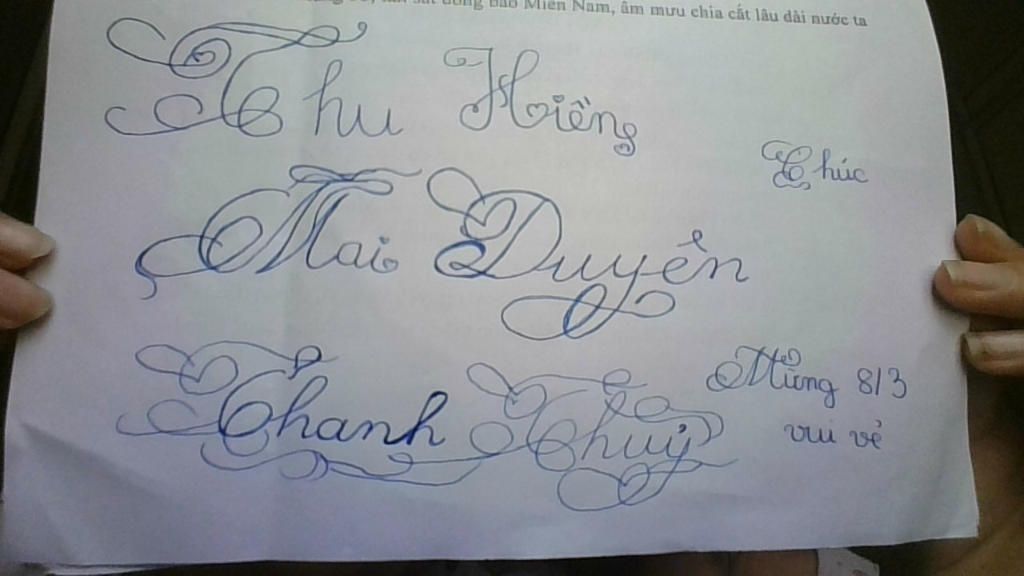 sát đồng bào Miền Nam, âm mưu chia cắt lâu dài nước ta
Thu Hiền
Chúc
Mai Duyên
Thanh Thuỷ
Mừng 8/3
vui vẻ